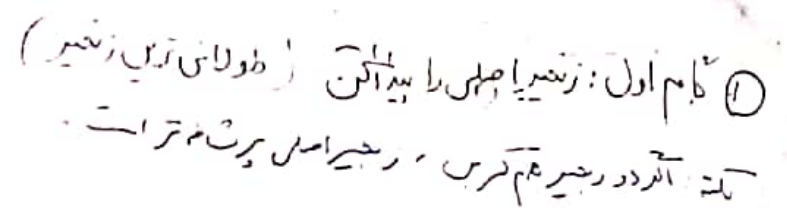 ① گام اول: زنجیر اصلی را پیدا کن (طولانی ترین زنجیر)
نکته: اگر دو زنجیر هم کربن، زنجیر اصلی پرشاخه تر است.